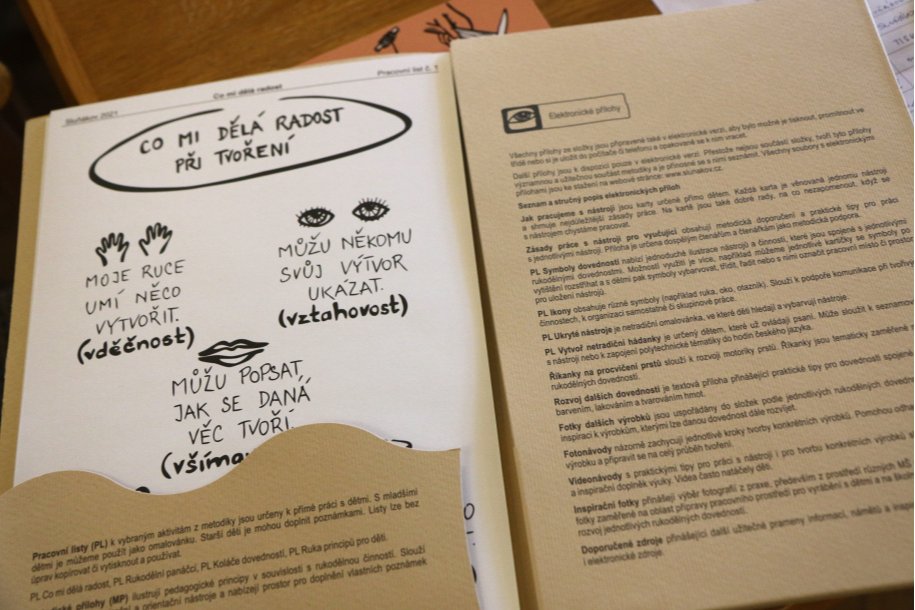 Sluňákov 2021
Co mi dělá radost
Pracovní list č. 1
CO MI DĚLÁ RADOST
PŘI TVOŘENÍ
MOJE RUCE
UMÍ NĚCO
VYTVOŘIT.
(vděčnost)
MŮŽU NĚKOMU
SVŮJ VÝTVOR
UKÁZAT.
(vztahovost)
MŮŽU POPSAT,
JAK SE DANÁ
VĚC TVOŘÍ.
Pracovní listy (PL) k vybraným aktivitám z metodiky jsou určeny k přímé práci s dětmi. S mladšími
dětmi je můžeme použít jako omalovánku. Starší děti je mohou doplnit poznámkami. Listy lze bez
úprav kopírovat či vytisknout a používat.
PL Co mi dělá radost, PL Rukodělní panáčci, PL Koláče dovedností, PL Ruka principů pro děti.
přílohy (MP) ilustrují pedagogické principy v souvislosti s rukodělnou činností. Slouží
orientační nástroje a nabízejí prostor pro doplnění vlastních poznámek
Elektronické přílohy
Všechny přílohy ze složky jsou připravené také v elektronické verzi, aby bylo možné je tisknout, promítnout ve
třídě nebo si je uložit do počítače či telefonu a opakovaně se k nim vracet.
Další přílohy jsou k dispozici pouze v elektronické verzi. Přestože nejsou součástí složky, tvoří tyto přílohy
významnou a užitečnou součást metodiky a je přínosné se s nimi seznámit. Všechny soubory s elektronickými
přílohami jsou ke stažení na webové stránce: www.slunakov.cz.
Seznam a stručný popis elektronických příloh
Jak pracujeme s nástroji jsou karty určené přímo dětem. Každá karta je věnovaná jednomu nástroji
a shrnuje nejdůležitější zásady práce. Na kartě jsou také dobré rady, na co nezapomenout, když se
s nástrojem chystáme pracovat.
Zásady práce s nástroji pro vyučující obsahují metodická doporučení a praktické tipy pro práci
s jednotlivými nástroji. Příloha je určena dospělým čtenářům a čtenářkám jako metodická podpora.
PL Symboly dovedností nabízí jednoduché ilustrace nástrojů a činností, které jsou spojené s jednotlivými
rukodělnými dovednostmi. Možností využití je více, například můžeme jednotlivé kartičky se symboly po
vytištění rozstříhat a s dětmi pak symboly vybarvovat, třídit, řadit nebo s nimi označit pracovní místo či prostor
pro uložení nástrojů.
PL Ikony obsahuje různé symboly (například ruka, oko, otazník). Slouží k podpoře komunikace při tvořivých
činnostech, k organizaci samostatné či skupinové práce.
PL Ukryté nástroje je netradiční omalovánka, ve které děti hledají a vybarvují nástroje.
PL Vytvoř netradiční hádanky je určený dětem, které už ovládají psaní. Může sloužit k seznamo
s nástroji nebo k zapojení polytechnické tématiky do hodin českého jazyka.
Říkanky na procvičení prstů slouží k rozvoji motoriky prstů. Říkanky jsou tematicky zaměřené
rukodělných dovedností.
Rozvoj dalších dovedností je textová příloha přinášející praktické tipy pro dovednosti spojené
barvením, lakováním a tvarováním hmot.
Fotky dalších výrobků jsou uspořádány do složek podle jednotlivých rukodělných dovednos
inspiraci k výrobkům, kterými lze danou dovednost dále rozvíjet.
Fotonávody názorně zachycují jednotlivé kroky tvorby konkrétních výrobků. Pomohou odha
výrobku a připravit se na celý průběh tvoření.
Videonávody s praktickými tipy pro práci s nástroji i pro tvorbu konkrétních výrobků
a inspirační doplněk výuky. Videa často natáčely děti.
Inspirační fotky přinášejí výběr fotografií z praxe, především z prostředí různých MŠ
fotky zaměřené na oblast přípravy pracovního prostředí pro vyrábění s dětmi a na
rozvoj jednotlivých rukodělných dovedností.
Doporučené zdroje přinášející další užitečné prameny informací, námětů a inspira
i elektronické zdroje.